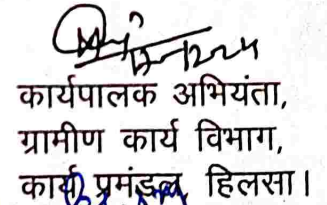 कार्यपालक अभियंता,
ग्रामीण कार्य विभाग,
कार्य प्रमंडल हिलसा।